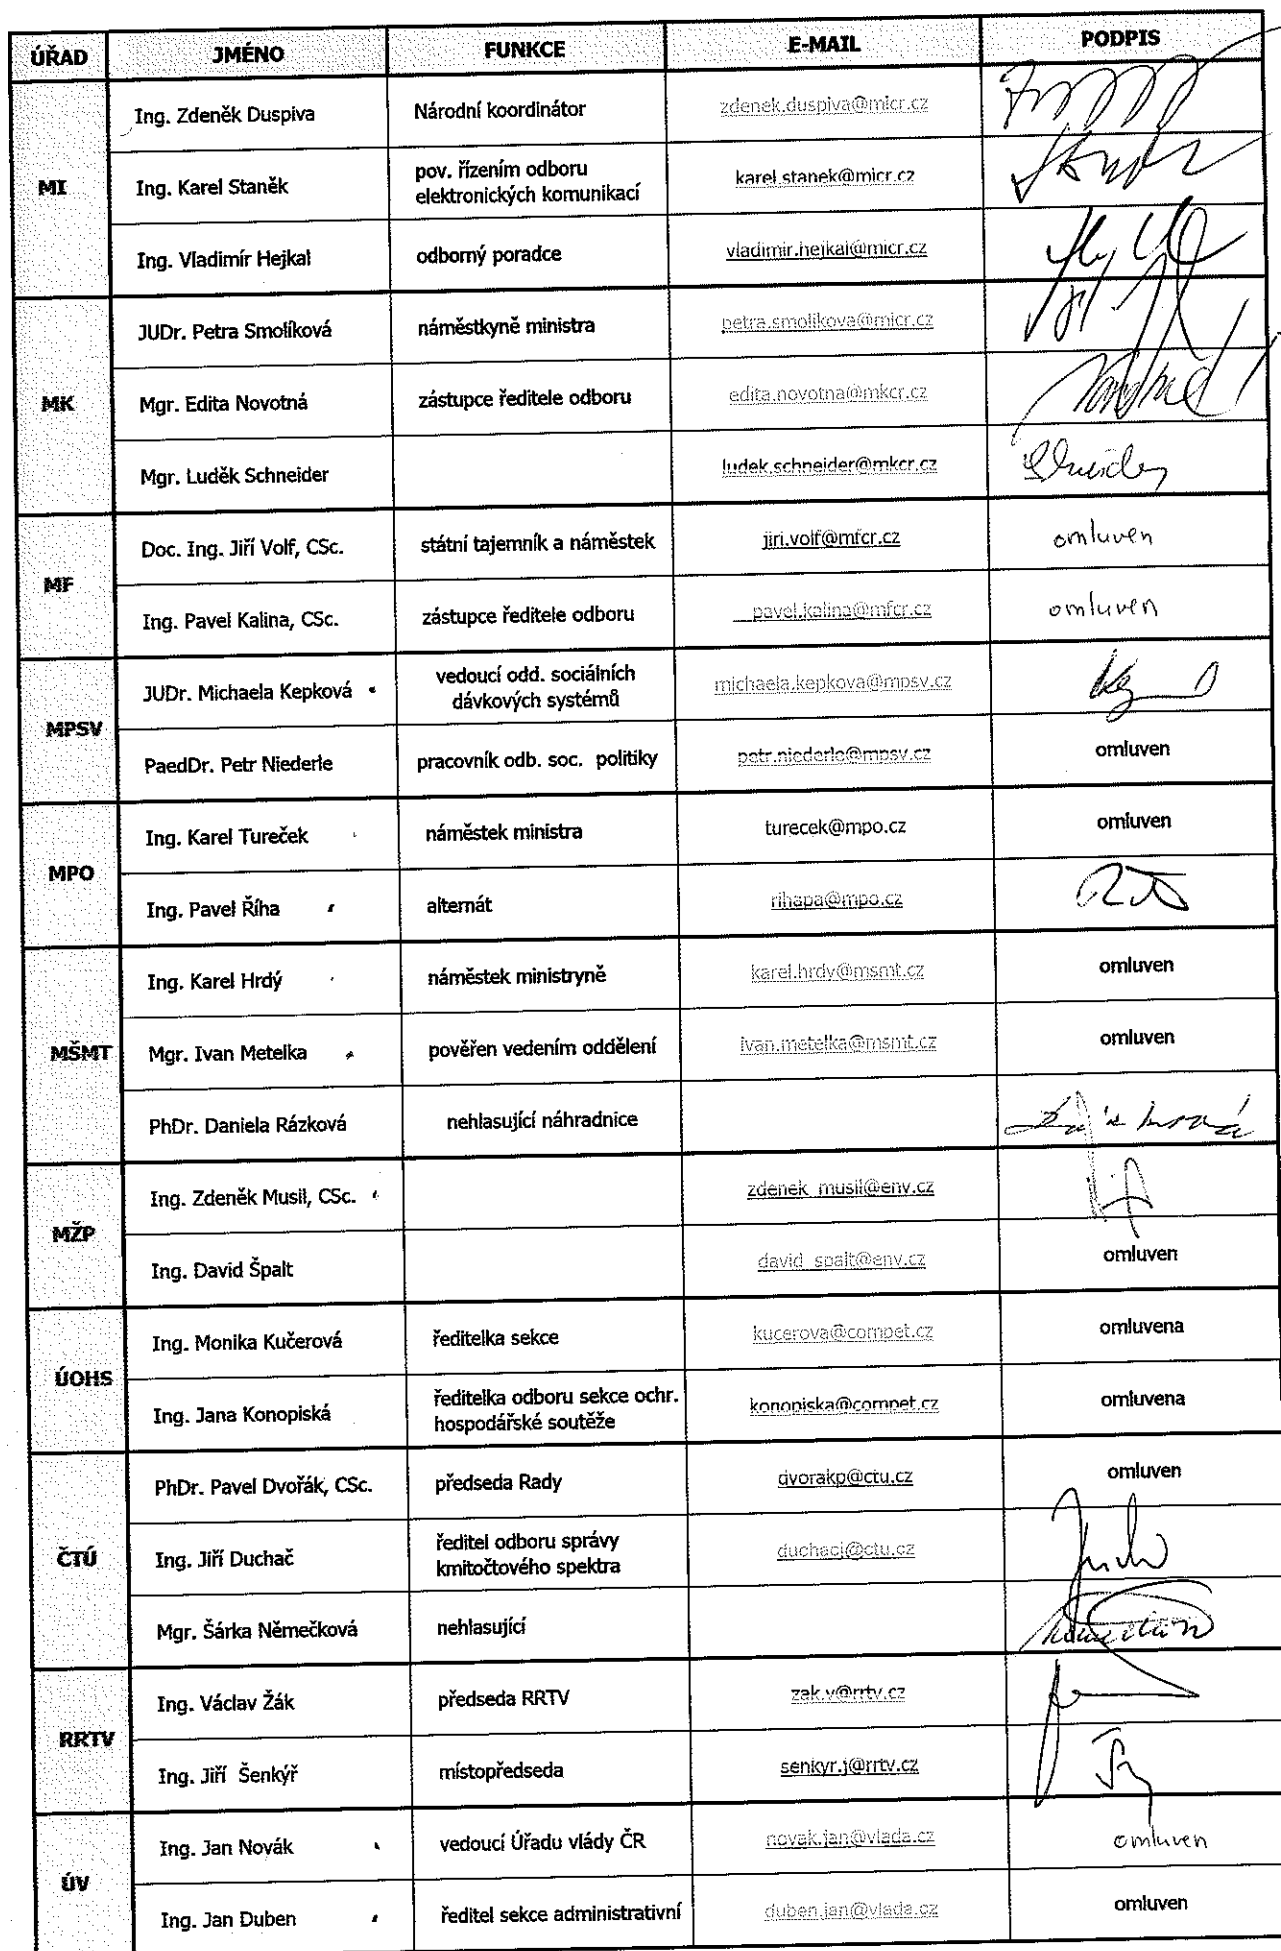 ÚŘAD JMÉNO FUNKCE E-MAIL PODPIS
MI
Ing. Zdeněk Duspiva Národní koordinátor zdenek.duspiva@micr.cz
Ing. Karel Staněk pov. řízením odboru elektronických komunikací karel.stanek@micr.cz
Ing. Vladimír Hejkal odborný poradce vladimir.hejkal@micr.cz
MK
JUDr. Petra Smolíková náměstkyně ministra petra.smolikova@micr.cz
Mgr. Edita Novotná zástupce ředitele odboru edita.novotna@mkcr.cz
Mgr. Luděk Schneider ludek.schneider@mkcr.cz
MF
Doc. Ing. Jiří Volf, CSc. státní tajemník a náměstek jiri.volf@mfcr.cz omluven
Ing. Pavel Kalina, CSc. zástupce ředitele odboru pavel.kalina@mfcr.cz omluven
MPSV
JUDr. Michaela Kepková vedoucí odd. sociálních dávkových systémů michaela.kepkova@mpsv.cz
PaedDr. Petr Niederle pracovník odb. soc. politiky petr.niederle@mpsv.cz omluven
MPO
Ing. Karel Tureček náměstek ministra turecek@mpo.cz omluven
Ing. Pavel Říha alternát rihapa@mpo.cz
MŠMT
Ing. Karel Hrdý náměstek ministryně karel.hrdy@msmt.cz omluven
Mgr. Ivan Metelka pověřen vedením oddělení ivan.metelka@msmt.cz omluven
PhDr. Daniela Rázková nehlasující náhradnice
MŽP
Ing. Zdeněk Musil, CSc. zdenek_musil@env.cz
Ing. David Špalt david_spalt@env.cz omluven
ÚOHS
Ing. Monika Kučerová ředitelka sekce kucerova@compet.cz omluvena
Ing. Jana Konopiská ředitelka odboru sekce ochr. hospodářské soutěže konopiska@compet.cz omluvena
ČTÚ
PhDr. Pavel Dvořák, CSc. předseda Rady dvorakp@ctu.cz omluven
Ing. Jiří Duchač ředitel odboru správy kmitočtového spektra duchacj@ctu.cz
Mgr. Šárka Němečková nehlasující
RRTV
Ing. Václav Žák předseda RRTV zak.v@rrtv.cz
Ing. Jiří Šenkýř místopředseda senkyr.j@rrtv.cz
ÚV
Ing. Jan Novák vedoucí Úřadu vlády ČR novak.jan@vlada.cz omluven
Ing. Jan Duben ředitel sekce administrativní duben.jan@vlada.cz omluven